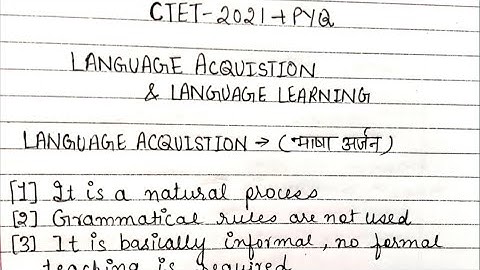 CTET-2021+PYQ
LANGUAGE ACQUISTION
& LANGUAGE LEARNING
LANGUAGE ACQUISTION → (भाषा अर्जन)
[1] It is a natural process
[2] Grammatical rules are not used
[3] It is basically informal, no formal
teaching is required